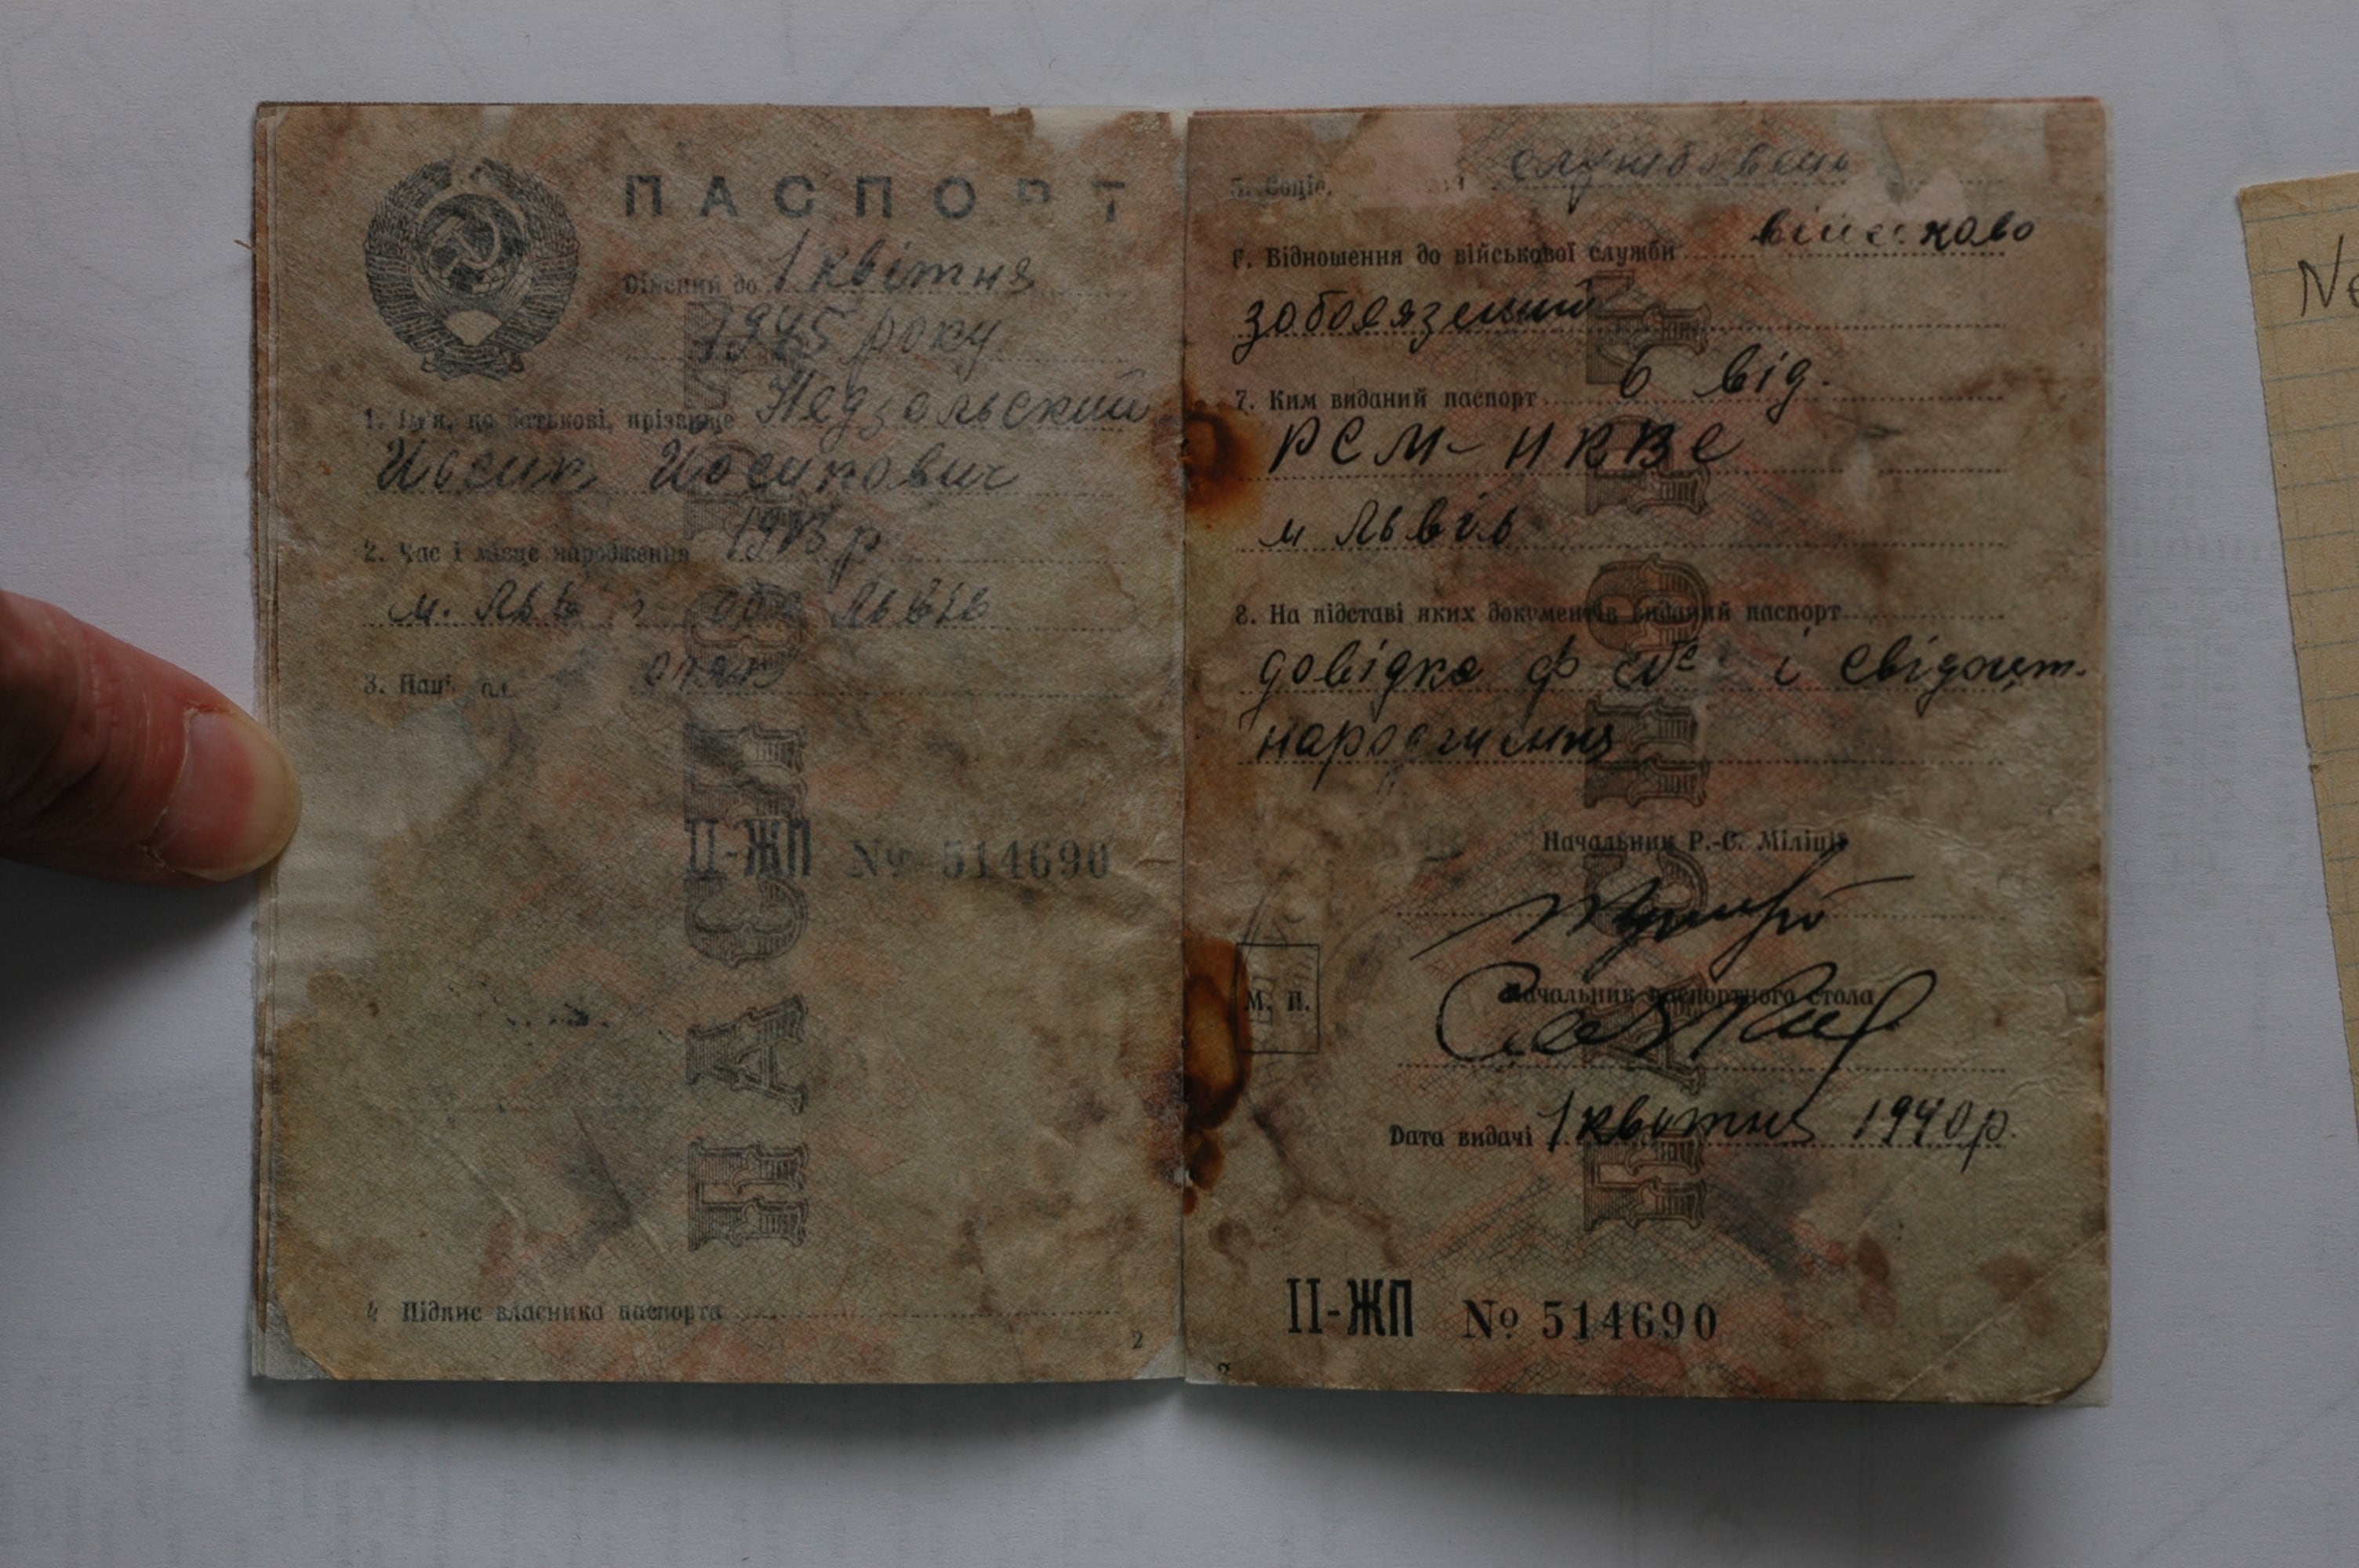 ПАСПОРТ
Дійсний до 1 квітня
1945 року
1. Ім'я, по батькові, прізвище
Йосипович
2. Час і місце народження
м. Львів
3.
II-ЖП № 514690
4 Підпис власника паспорта
2
5. службовець
6. Відношення до військової служби військово
зобовязаний
7. Ким виданий паспорт 6 від.
РСМ-НКВС
м Львів
8. На підставі яких документів виданий паспорт
довідка ф і свідоцт.
народження
Начальник Р.-С. Міліції
М. П.
Начальник паспортного стола
Дата видачі 1 квітня 1940 р.
II-ЖП № 514690
ПАСПОРТ